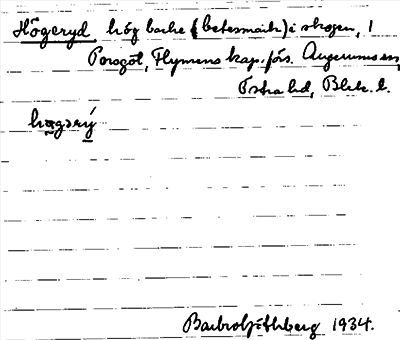 Högeryd hög backe (betesmark) i skogen, 1
Porsgöl, Flymens kap. förs. Augerums sn,
Östra hd, Blek. l.
høgərý
Barbro Ljüthberg 1934.